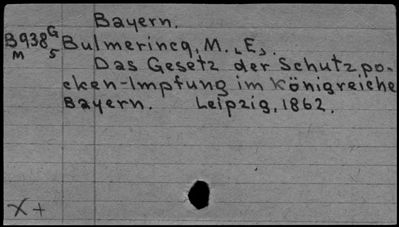 Bayern.
B938G Bulmerincq, M. [E].
M 5 Das Gesetz der Schutzpo-
cken-Impfung im Königreiche
Bayern. Leipzig, 1862.
X+